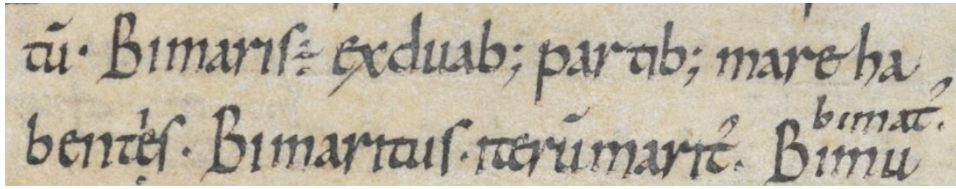 tū· Bimaris exduab; partib; mare ha
bentẹs· Bimaritus· iterūmarit᾽· Bimu
bimat᾽·